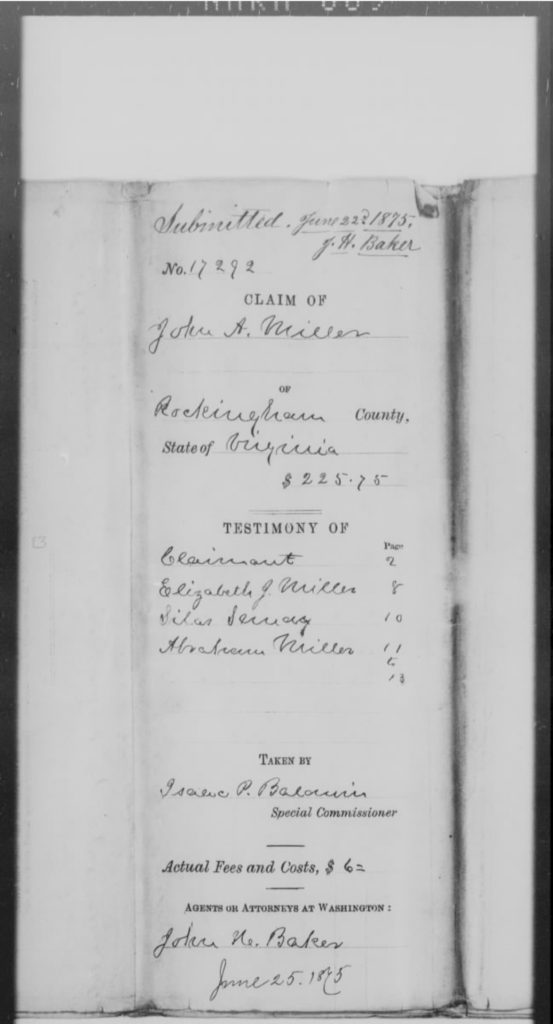 Submitted. June 22d 1875.
J. H. Baker
No. 17292
CLAIM OF
John A. Miller
OF
Rockingham County,
State of Virginia
$ 225.75
TESTIMONY OF
Page
Claimant 2
Elizabeth J. Miller 8
Silas 10
Abraham Miller 11
to
13
TAKEN BY
Isaac P. Baldwin
Special Commissioner
Actual Fees and Costs, $ 6=
AGENTS OR ATTORNEYS AT WASHINGTON:
John H. Baker
June 25. 1875